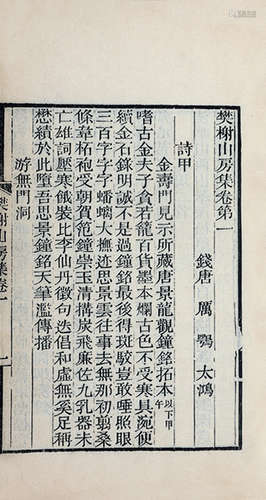 樊榭山房集卷第一
錢唐 厲鶚 太鴻
詩甲
金壽門見示所藏唐景龍觀鐘銘拓本 以下甲午
嗜古金夫子貪若籠百貨墨本爛古色不受寒具涴便
續金石錄明誠不是過鐘銘最後得斑駮豈敢唾照眼
三百字字字蟠螭大撫迹思景雲往事去無那初翦桑
條韋柘袍受朝賀范鐘崇玉清搆炭飛廉佐九乳器未
亡雄詞壓寒餓裝比李仙丹徵句迭倡和虛無奚足稱
懋績於此墮吾思景鐘銘天筆濫傳播
游無門洞
樊榭山房集卷一
一